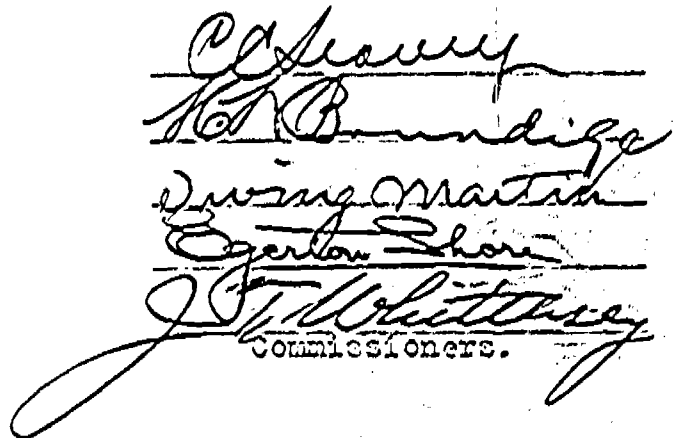 C C Seavey
H. L. Brundige
Irving Martin
Egerton Shore
J T Whittlesey
Commissioners.